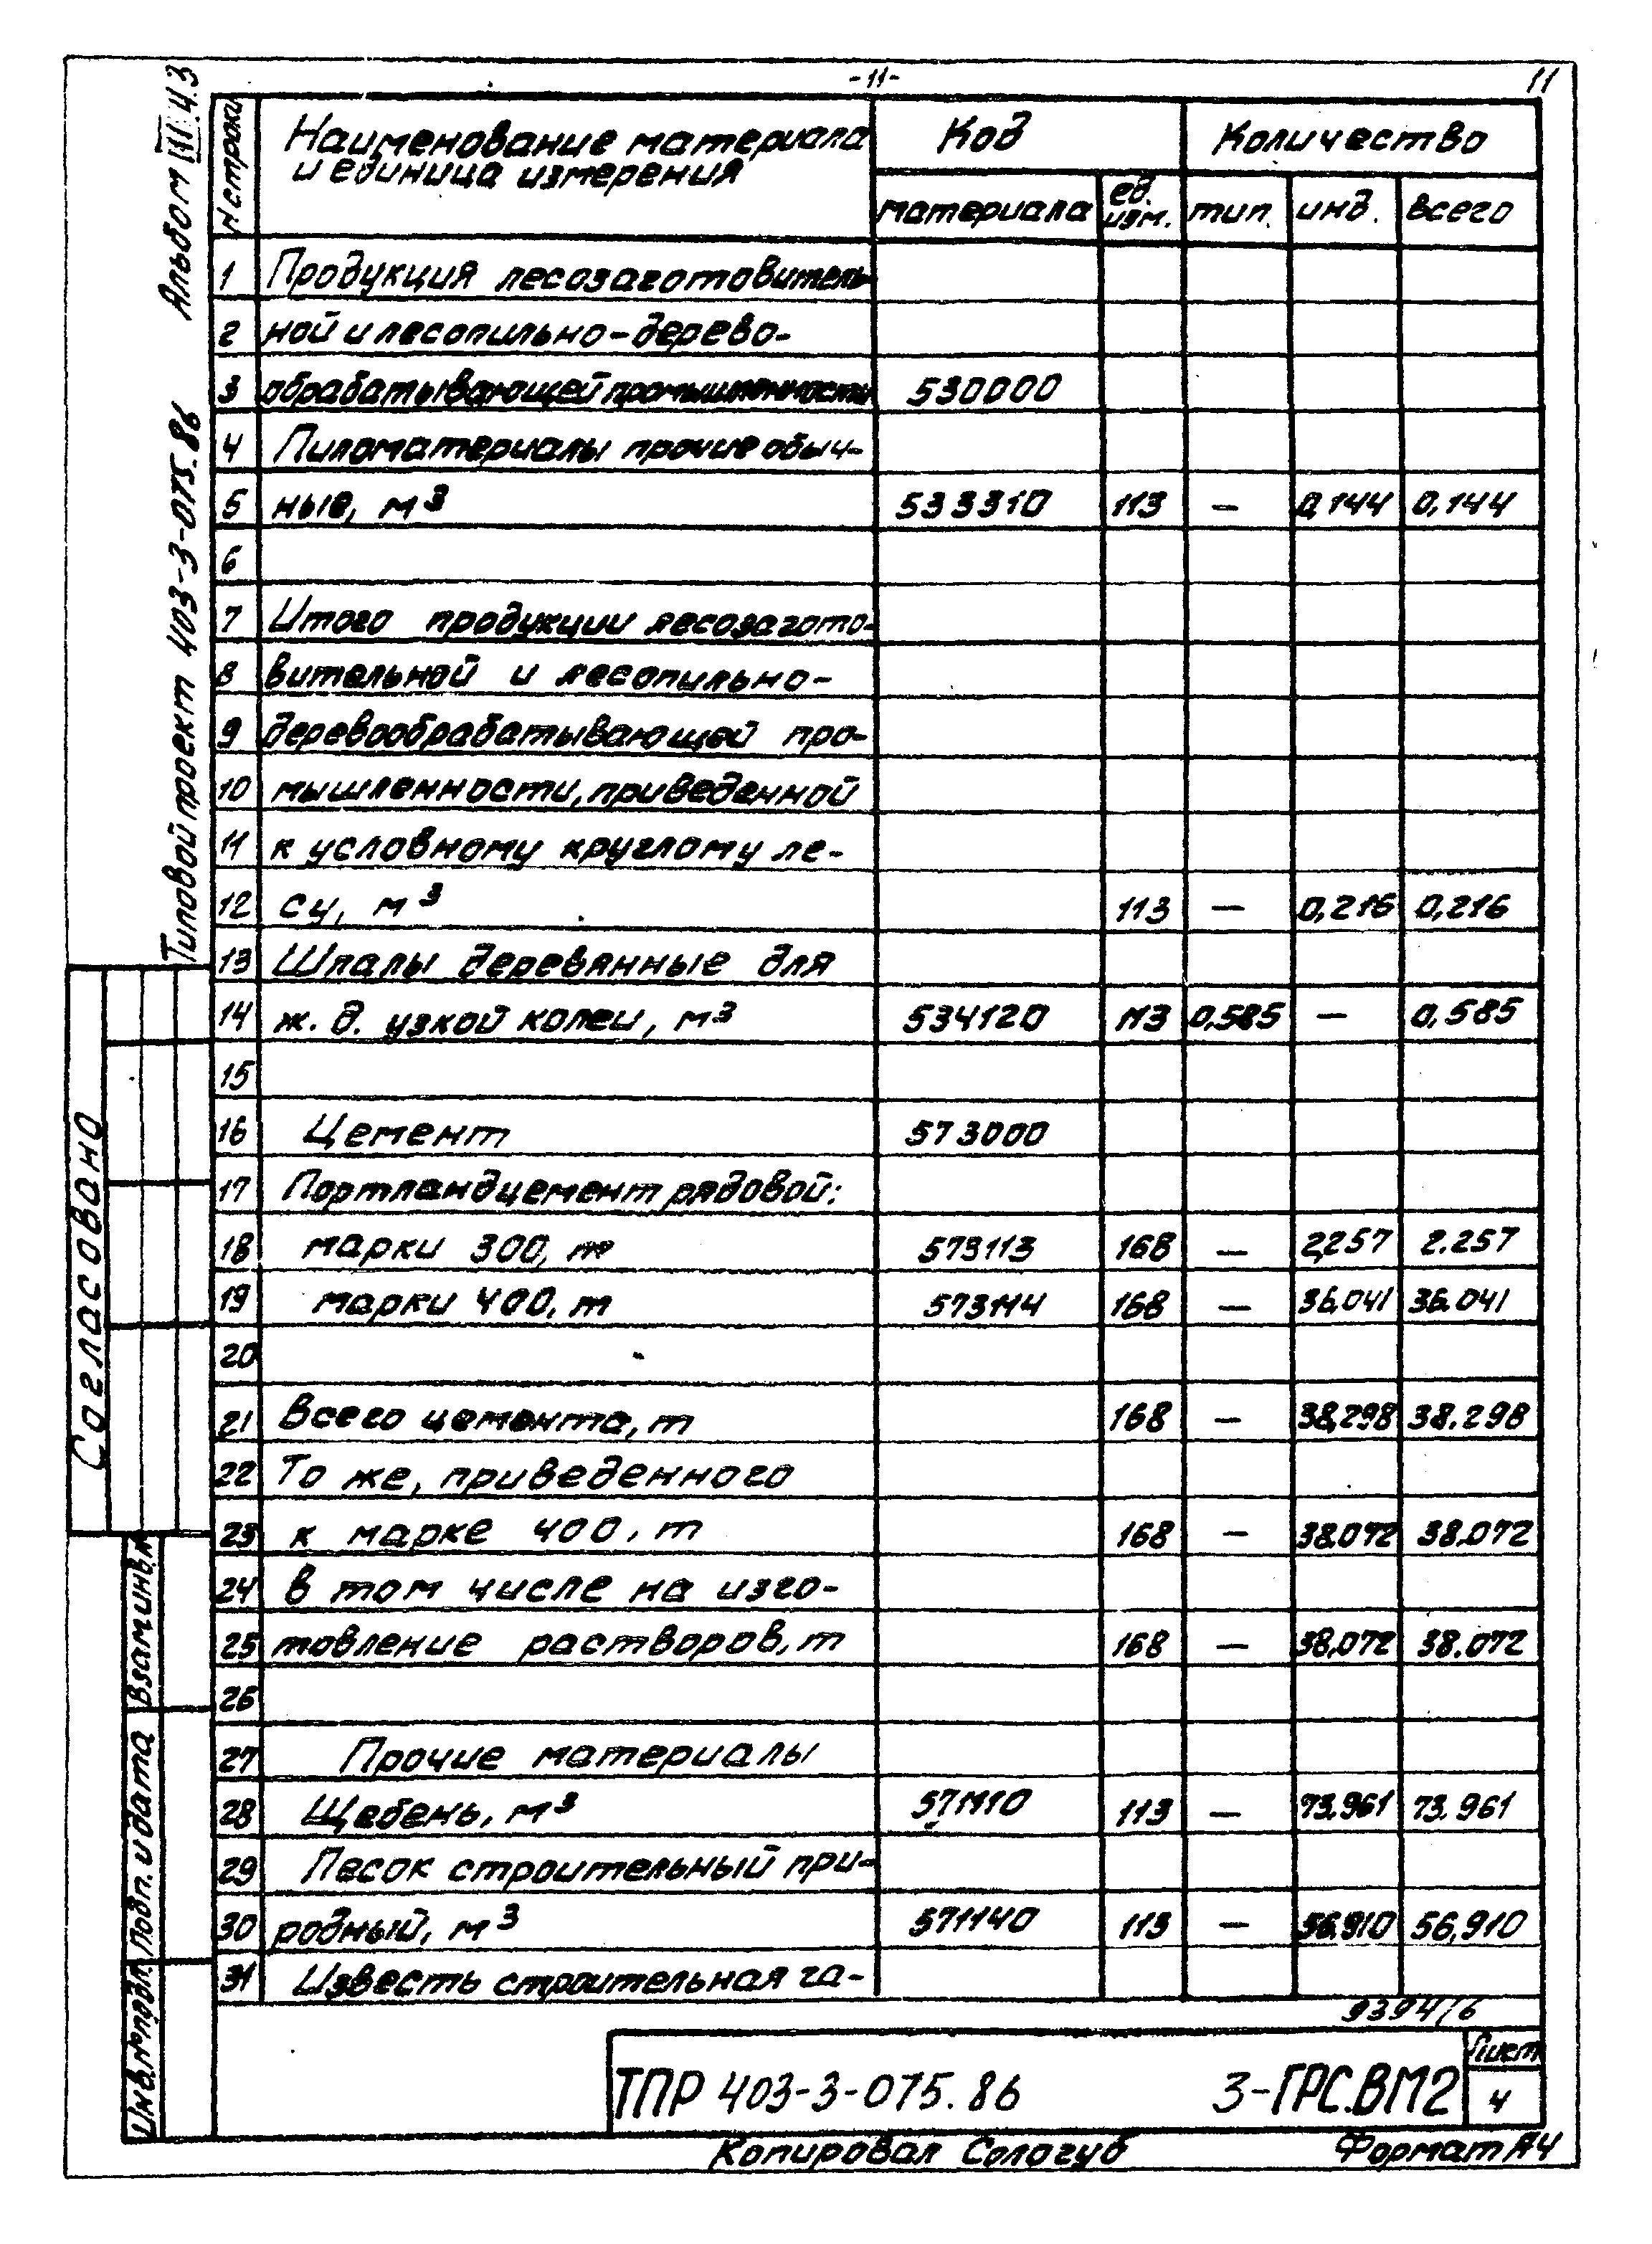 -11-
11
Альбом III.4.3
Типовой проект 403-3-075.86
N строки
Наименование материала
и единица измерения
Код
Количество
материала
ед.
изм.
тип.
инд.
всего
1 Продукция лесозаготовитель-
2 ной и лесопильно-дерево-
3 обрабатывающей промышленности 530000
4 Пиломатериалы прочие обыч-
5 ные, м³ 533310 113 — 0,144 0,144
6
7 Итого продукции лесозагото-
8 вительной и лесопильно-
9 деревообрабатывающей про-
10 мышленности, приведенной
11 к условному круглому ле-
12 су, м³ 113 — 0,216 0,216
13 Шпалы деревянные для
14 ж.д. узкой колеи, м³ 534120 113 0,585 — 0,585
15
16 Цемент 573000
17 Портландцемент рядовой:
18 марки 300, т 573113 168 — 2,257 2.257
19 марки 400, т 573114 168 — 36,041 36.041
20
21 Всего цемента, т 168 — 38,298 38.298
22 То же, приведенного
23 к марке 400, т 168 — 38.072 38.072
24 В том числе на изго-
25 товление растворов, т 168 — 38,072 38.072
26
27 Прочие материалы
28 Щебень, м³ 571110 113 — 73.961 73.961
29 Песок строительный при-
30 родный, м³ 571140 113 — 56,910 56,910
31 Известь строительная га-
Согласовано
Взам.инв.№
Подп. и дата
Инв.№ подл.
9394/6
ТПР 403-3-075.86 3-ГРС.ВМ2
Лист
4
Копировал Сологуб
Формат А4